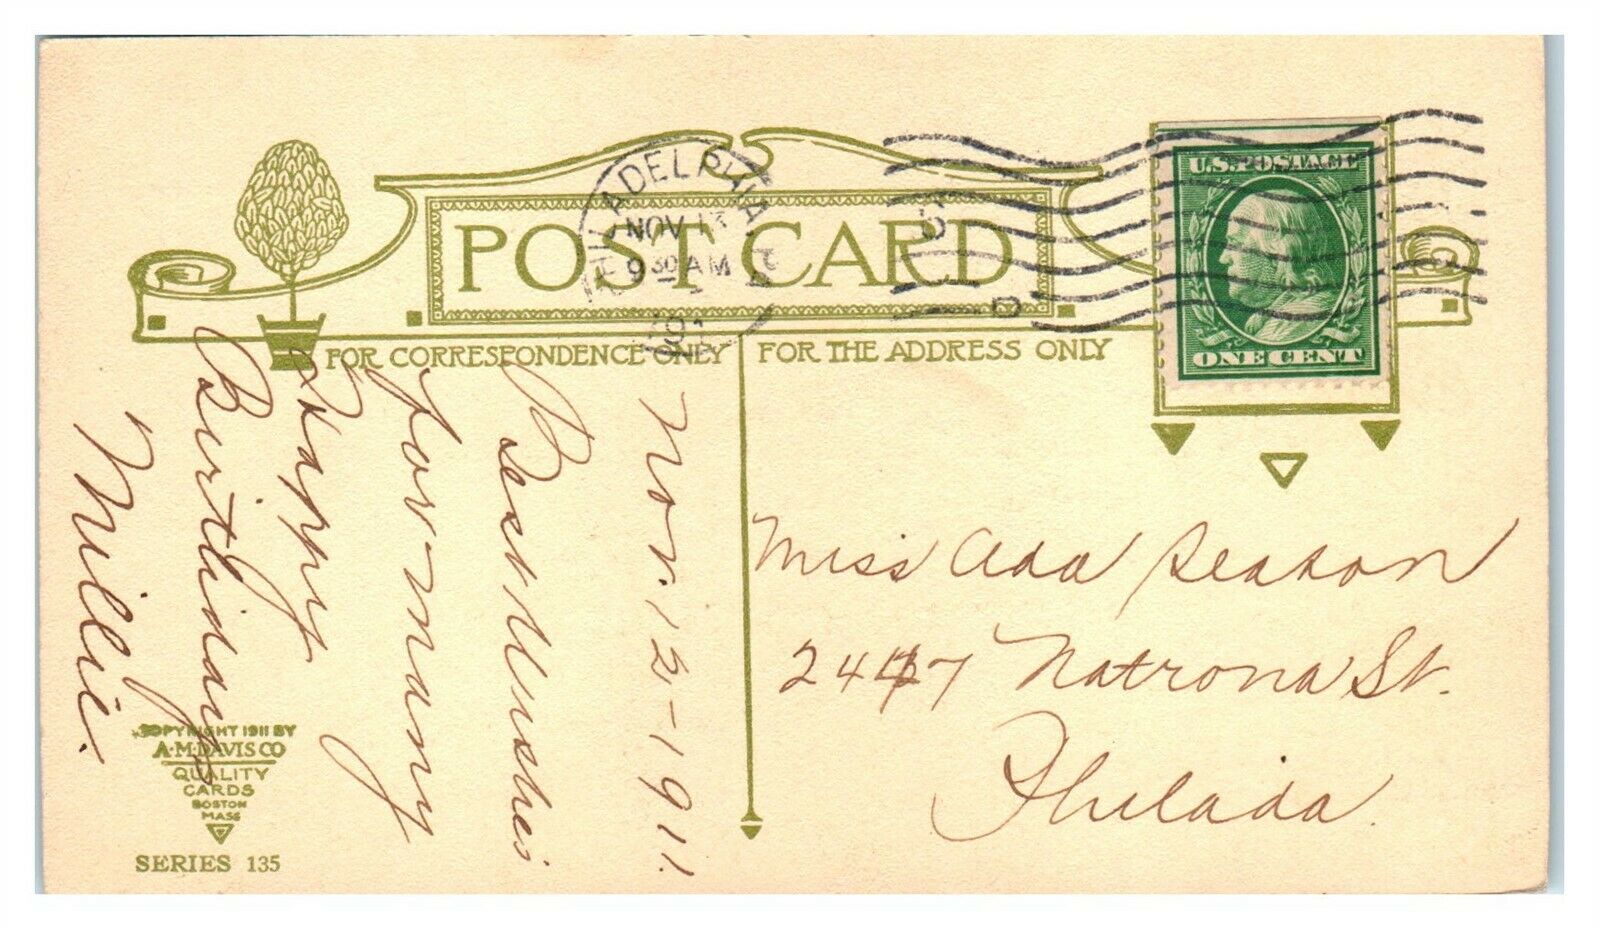 POST CARD
PHILADELPHIA, PA.
NOV 13
9 30 AM
1911
U.S. POSTAGE
ONE CENT
FOR CORRESPONDENCE ONLY
FOR THE ADDRESS ONLY
Nov. 12-1911.
Best Wishes
for many
Happy
Birthdays
Millie.
Miss Ada Seaton
2447 Natrona St.
Philada.
COPYRIGHT 1911 BY
A.M.DAVIS CO
QUALITY
CARDS
BOSTON
MASS
SERIES 135